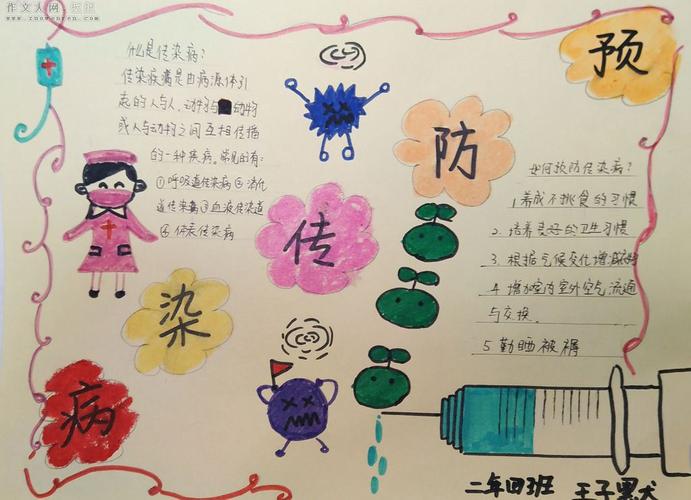 作文人网
www.zuowenren.com
预
防
传
染
病
什么是传染病?
传染疾病是由病源体引
起的人与人、动物与动物
或人与动物之间互相传播
的一种疾病。常见的有:
①呼吸道传染病②消化
道传染病③血液传染道
④体表传染病
如何预防传染病?
1.养成不挑食的习惯
2.培养良好的卫生习惯
3.根据气候变化增减衣物
4.增加室内室外空气流通
与交换。
5.勤晒被褥
二年四班 王子